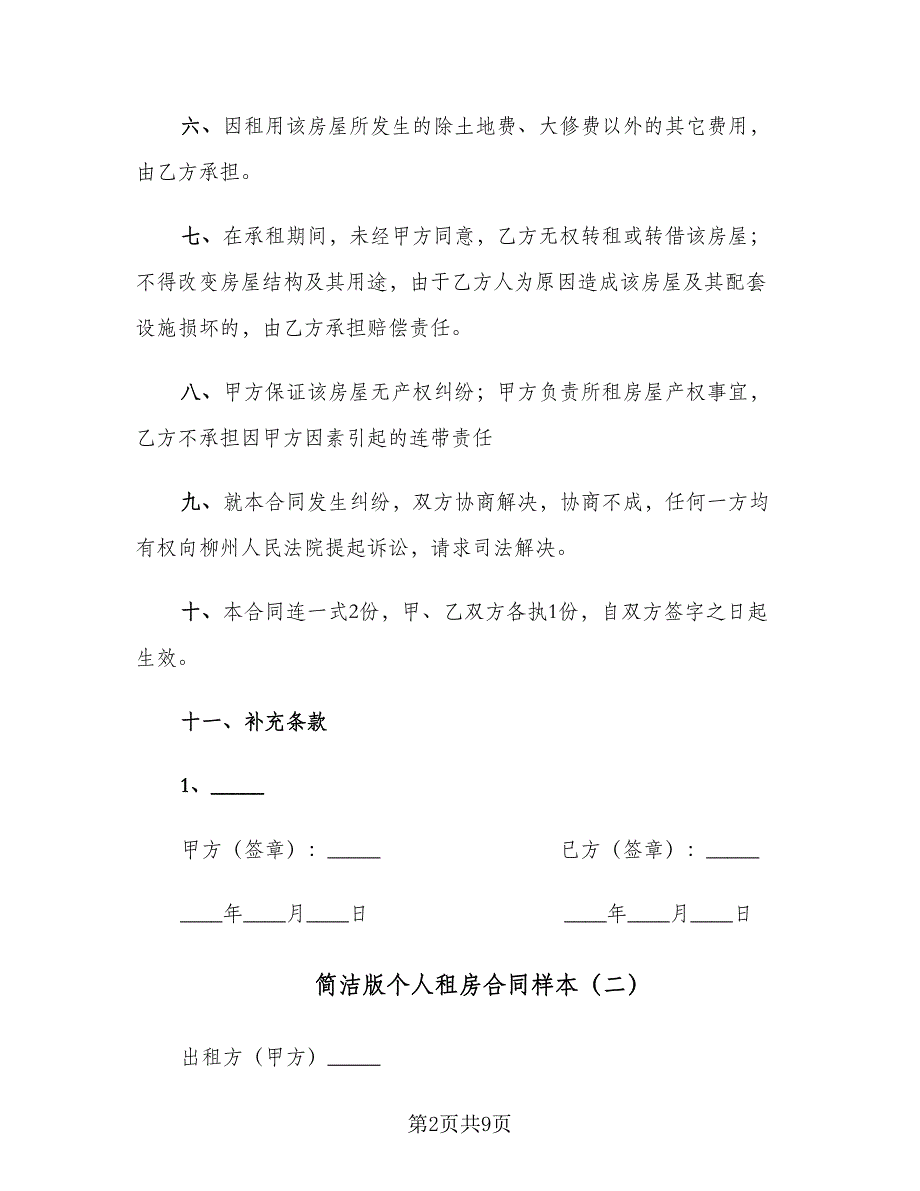 六、因租用该房屋所发生的除土地费、大修费以外的其它费用，
由乙方承担。
七、在承租期间，未经甲方同意，乙方无权转租或转借该房屋；
不得改变房屋结构及其用途，由于乙方人为原因造成该房屋及其配套
设施损坏的，由乙方承担赔偿责任。
八、甲方保证该房屋无产权纠纷；甲方负责所租房屋产权事宜，
乙方不承担因甲方因素引起的连带责任
九、就本合同发生纠纷，双方协商解决，协商不成，任何一方均
有权向柳州人民法院提起诉讼，请求司法解决。
十、本合同连一式2份，甲、乙双方各执1份，自双方签字之日起
生效。
十一、补充条款
1、_____
甲方（签章）：_____ 已方（签章）：_____
____年____月____日 ____年____月____日
简洁版个人租房合同样本（二）
出租方（甲方）_____
第2页共9页